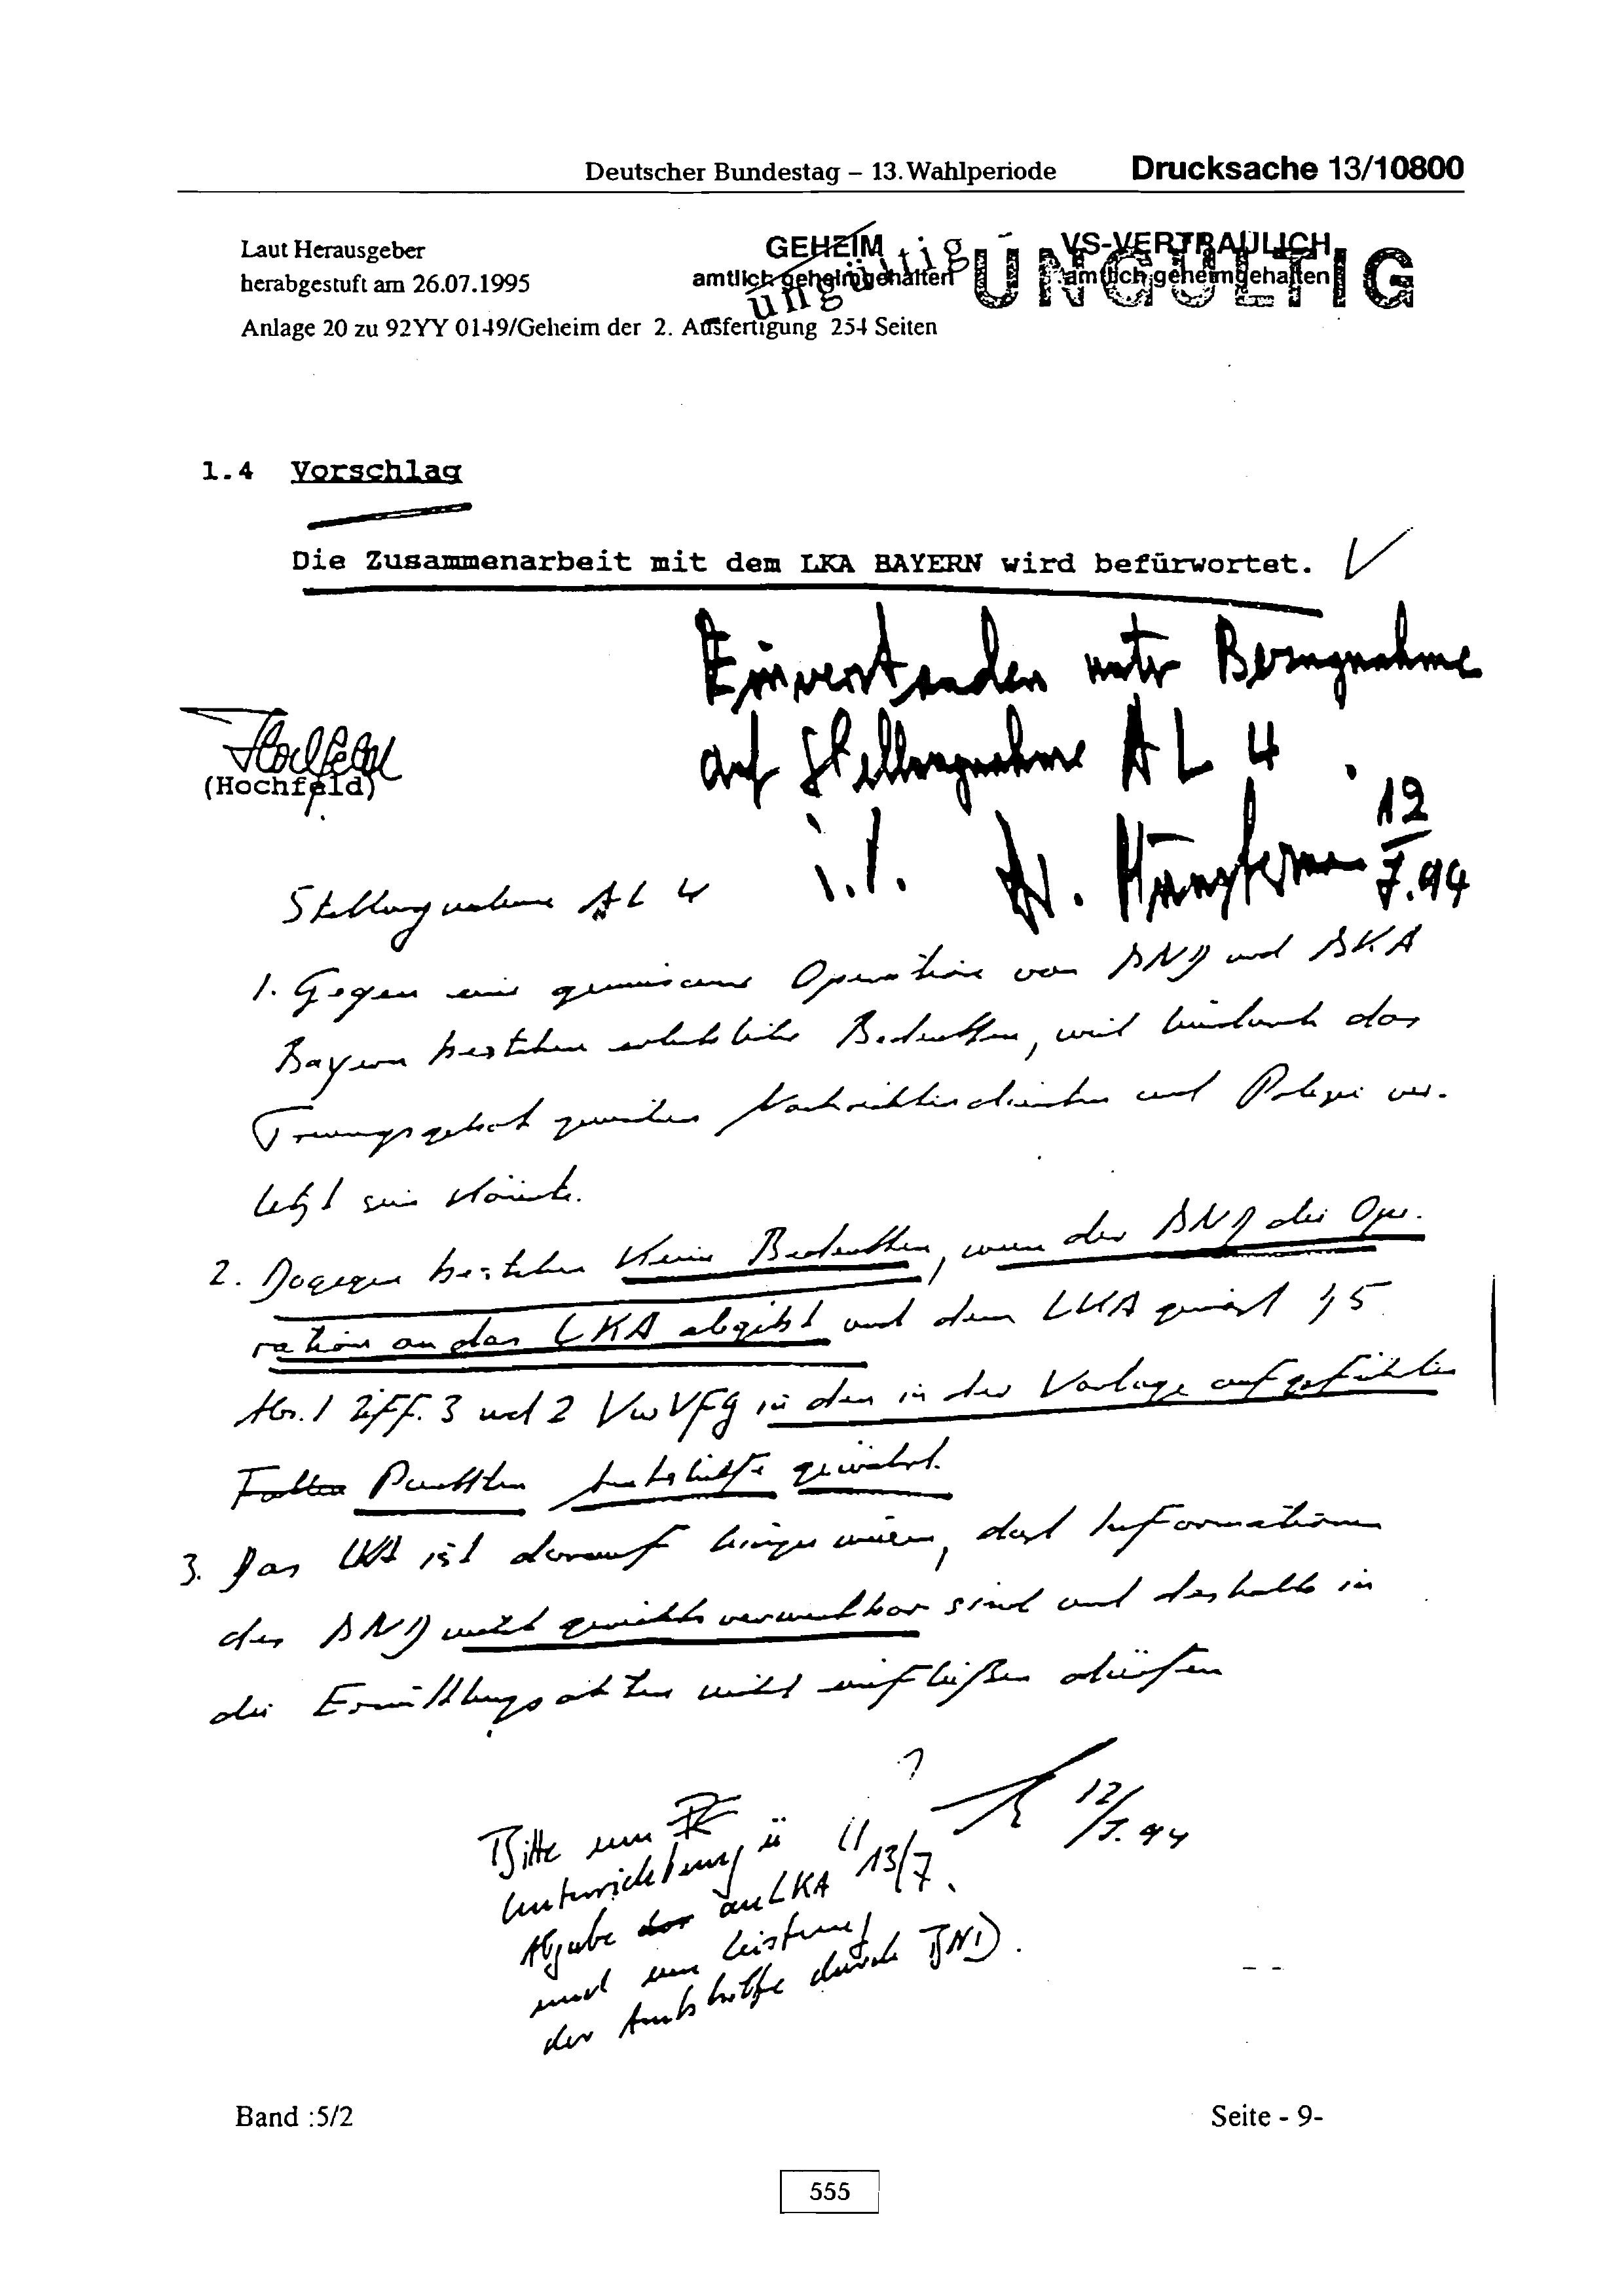 Deutscher Bundestag – 13. Wahlperiode Drucksache 13/10800
Laut Herausgeber
herabgestuft am 26.07.1995
GEHEIM
amtlich geheimgehalten
ungültig
VS-VERTRAULICH
amtlich geheimgehalten
UNGÜLTIG
Anlage 20 zu 92YY 0149/Geheim der 2. Ausfertigung 254 Seiten
1.4 Vorschlag
Die Zusammenarbeit mit dem LKA BAYERN wird befürwortet.
Einverstanden unter Bezugnahme
auf Stellungnahme AL 4.
12
7.94
(Hochfeld)
Stellungnahme AL 4
1. Gegen eine gemeinsame Operation von BND und BKA
Bayern bestehen erhebliche Bedenken, weil hierdurch das
Trennungsgebot zwischen Nachrichtendiensten und Polizei ver-
letzt sein könnte.
2. Dagegen bestehen keine Bedenken, wenn der BND die Ope-
ration an das LKA abgibt und dem LKA gemäß § 5
Abs. 1 Ziff. 3 und 2 VwVfG in den in der Vorlage aufgeführten
Fällen Punkten Amtshilfe gewährt.
3. Das LKA ist darauf hinzuweisen, daß Informationen
des BND nicht gerichtsverwertbar sind und deshalb in
die Ermittlungsakten nicht einfließen dürfen
?
12/7.94
Bitte um
Unterrichtung ü
13/7.
Abgabe der an LKA
und um Leistung
der Amtshilfe durch BND.
Band :5/2
Seite - 9-
555